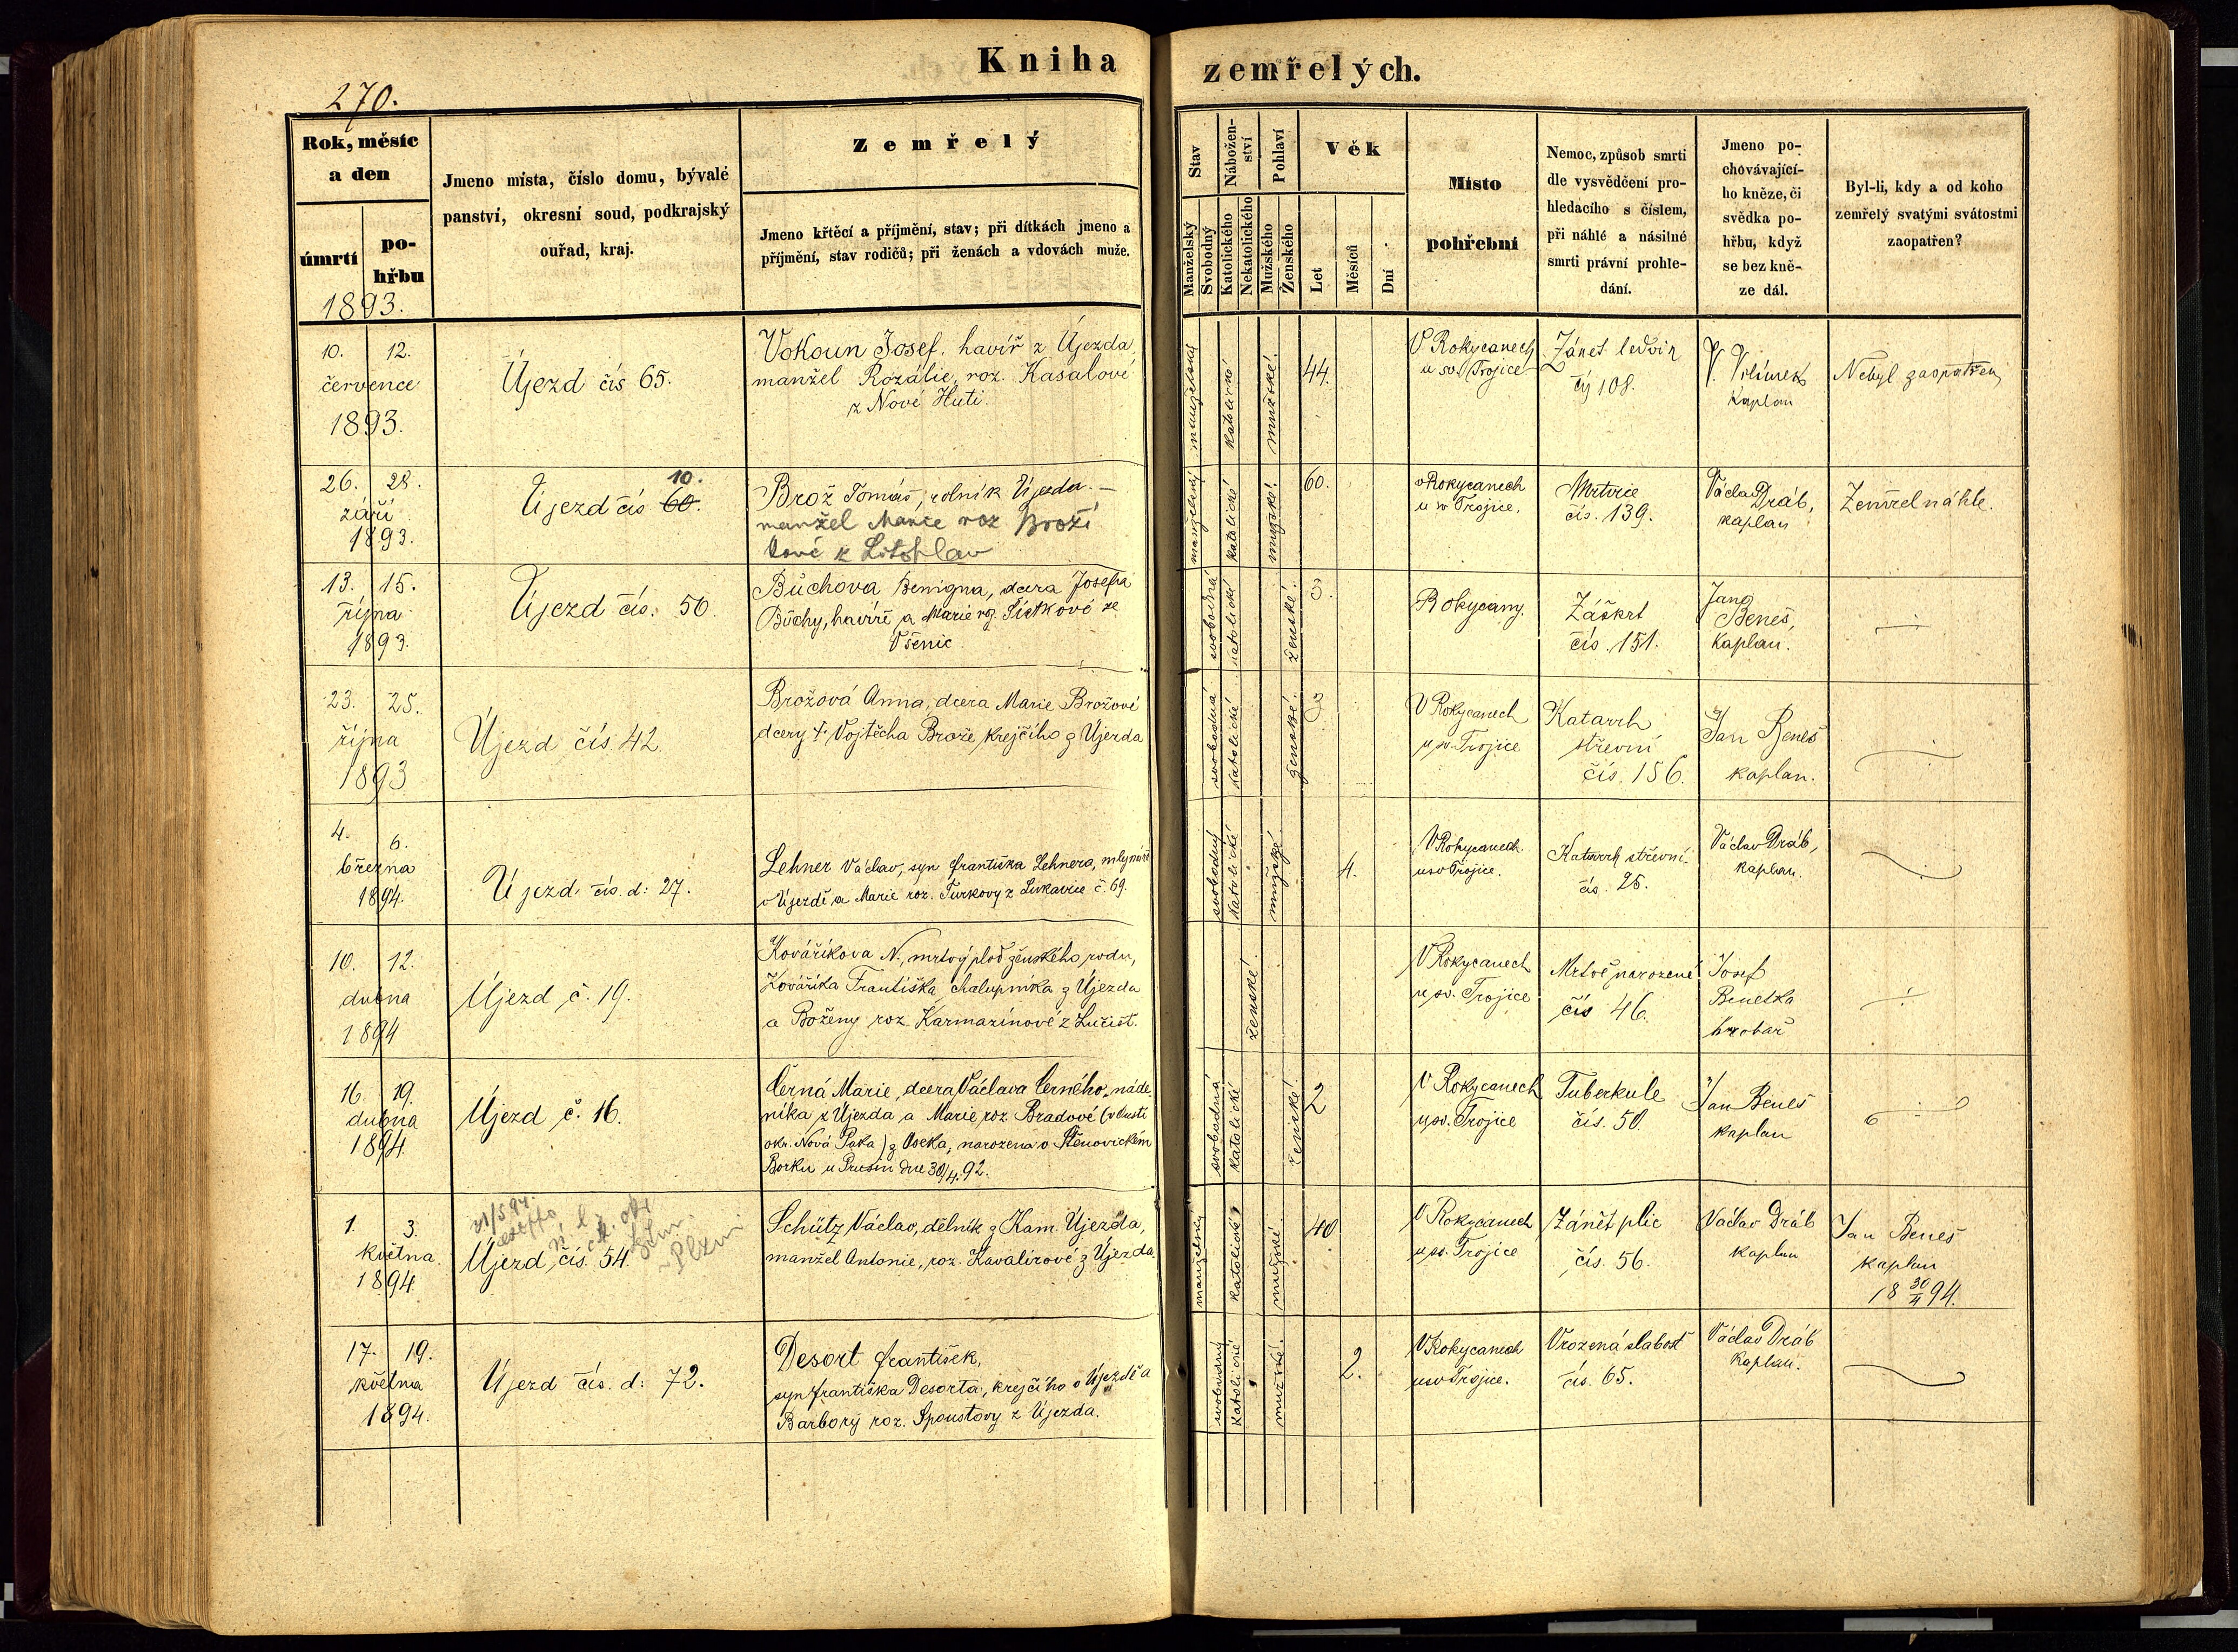 Kniha zemřelých.
270.
Rok, měsíc a den
úmrtí
pohřbu
1893.
Jmeno místa, číslo domu, bývalé
panství, okresní soud, podkrajský
ouřad, kraj.
Zemřelý
Jmeno křtěcí a příjmění, stav; při dítkách jmeno a
příjmění, stav rodičů; při ženách a vdovách muže.
Stav
Manželský
Svobodný
Náboženství
Katolického
Nekatolického
Pohlaví
Mužského
Ženského
Věk
Let
Měsíců
Dní
Místo
pohřební
Nemoc, způsob smrti
dle vysvědčení pro-
hledacího s číslem,
při náhlé a násilné
smrti právní prohle-
dání.
Jmeno po-
chovávající-
ho kněze, či
svědka po-
hřbu, když
se bez kně-
ze dál.
Byl-li, kdy a od koho
zemřelý svatými svátostmi
zaopatřen?
10. 12.
července
1893.
Újezd čís 65.
Vokoun Josef, havíř z Újezda,
manžel Rozálie, roz. Kasalové
z Nové Huti.
manželský
katolické
mužské.
44.
V Rokycanech
u sv. Trojice
Zánět ledvin
čís 108.
V. Vilímek
kaplan
Nebyl zaopatřen
26. 28.
září
1893.
Újezd čís 60.
10.
Brož Tomáš, rolník Újezda. —
manžel Marie roz Broží
kové z Litohlav
manželský
katolické
mužské.
60.
v Rokycanech
u sv Trojice.
Mrtvice
čís. 139.
Václav Dráb,
kaplan
Zemřel náhle.
13. 15.
října
1893.
Újezd čís. 50.
Bůchova Benigna, dcera Josefa
Bůchy, havíře a Marie roz. Šístkové ze
Všenic
svobodná
katolické
ženské.
3.
Rokycany.
Záškrt
čís. 151.
Jan
Beneš,
kaplan.
23. 25.
října
1893
Újezd čís 42.
Brožová Anna, dcera Marie Brožové
dcery † Vojtěcha Brože, krejčího z Újezda
svobodná
katolické
ženské.
3
V Rokycanech
u sv. Trojice
Katarrh
střevní
čís. 156.
Jan Beneš
kaplan.
4. 6.
března
1894.
Újezd čís. d: 27.
Lehner Václav, syn Františka Lehnera, mlynáře
v Újezdě a Marie roz. Turkovy z Lukavice č. 69.
svobodný
katolické
mužské
4.
V Rokycanech
u sv Trojice.
Katarrh střevní.
čís. 25.
Václav Dráb,
kaplan.
10. 12.
dubna
1894
Újezd č. 19.
Kovaříkova N., mrtvý plod ženského rodu,
Kovaříka Františka, chalupníka z Újezda
a Boženy roz. Karmazínové z Lučišt.
ženské.
V Rokycanech
u sv. Trojice
Mrtvě narozené
čís 46.
Josef
Benetka
hrobař
16. 19.
dubna
1894.
Újezd č. 16.
Černá Marie, dcera Václava Černého, náde-
níka z Újezda a Marie, roz. Bradové (v Ústí
okr. Nová Paka) z Oseka, narozena v Štěnovickém
Borku u Prusin dne 30/4. 92.
svobodná
katolické
ženské
2
V Rokycanech
u sv. Trojice
Tuberkule
čís. 50.
Jan Beneš
kaplan
1. 3.
května
1894.
31/5 94
Plzni
Újezd, čís. 54.
Schütz Václav, dělník z Kam. Újezda,
manžel Antonie, roz. Kavalírové z Újezda
manželský
katolické
mužské.
40
V Rokycanech
u sv. Trojice
Zánět plic
čís. 56.
Václav Dráb
kaplan
Jan Beneš
kaplan
18 30/4 94.
17. 19.
května
1894.
Újezd čís. d: 72.
Desort František,
syn Františka Desorta, krejčího v Újezdě a
Barbory roz. Spoustovy z Újezda.
svobodný
katolické
mužské.
2.
V Rokycanech
u sv Trojice.
Vrozená slabost
čís. 65.
Václav Dráb
kaplan.